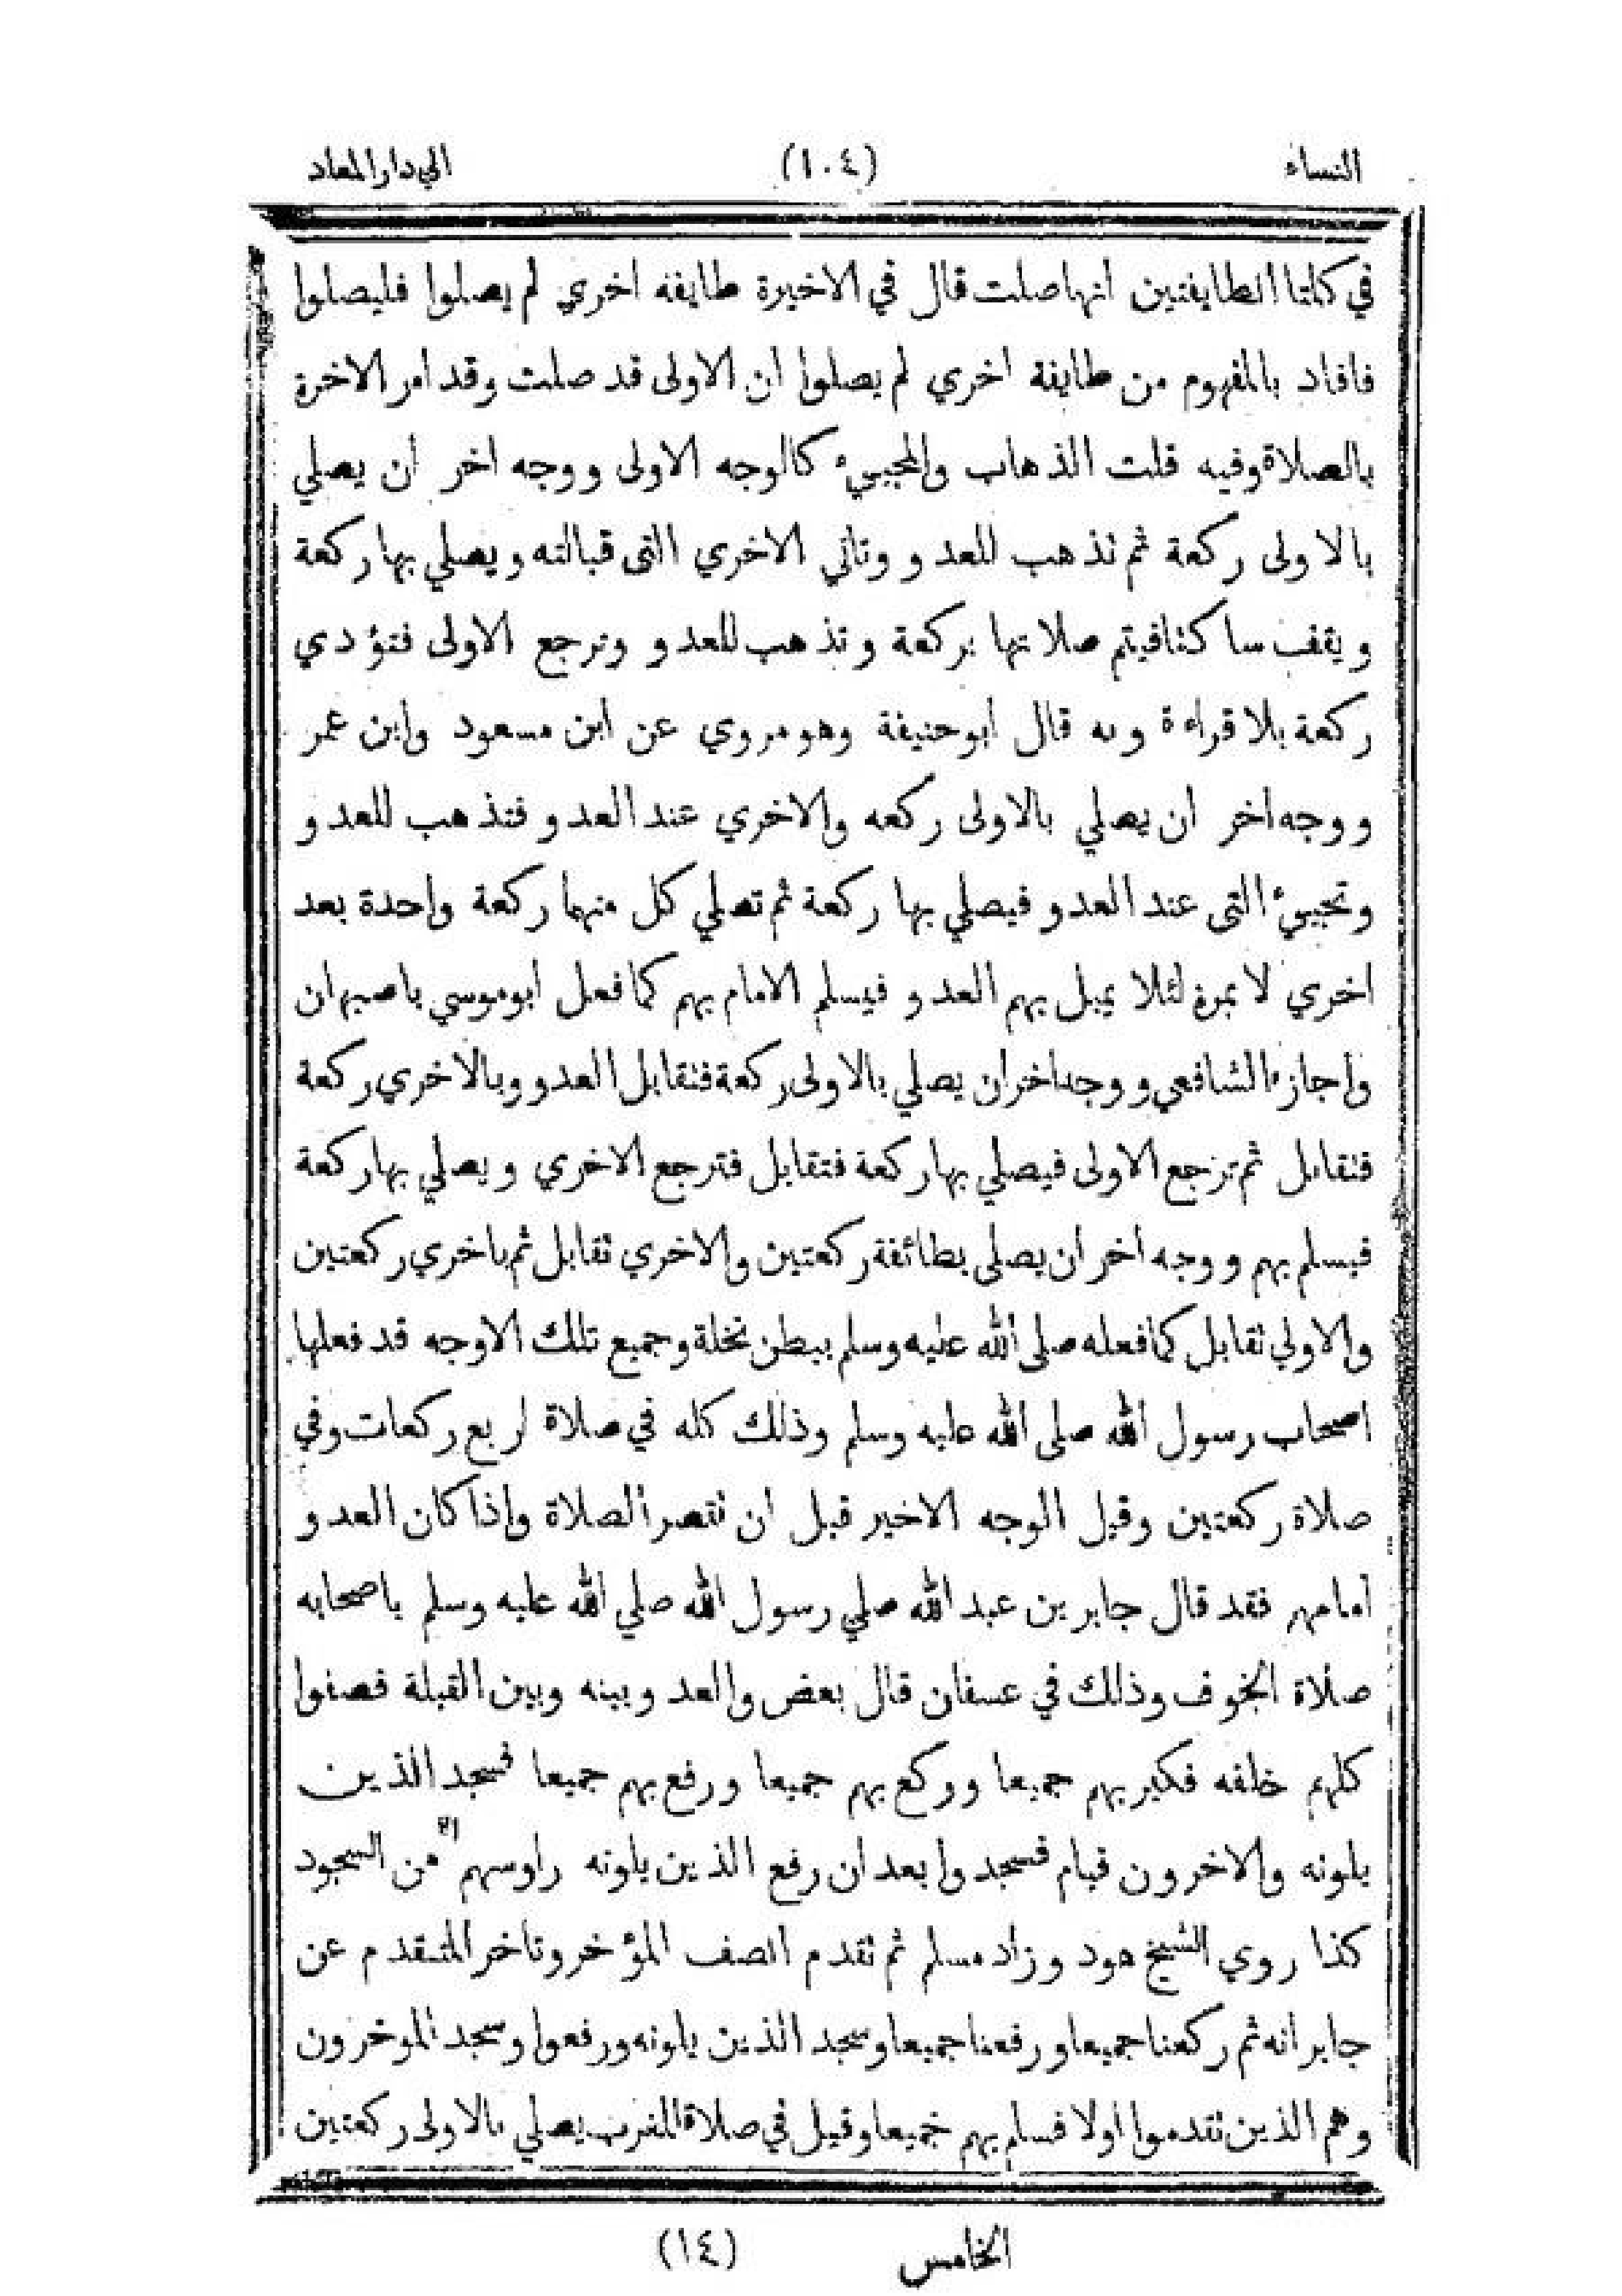 النساء (١٠٤) الي دار المعاد
في كلتا الطايفتين انها صلت قال في الاخيرة طايفه اخري لم يصلوا فليصلوا
فافاد بالمفهوم من طايفة اخري لم يصلوا ان الاولى قد صلت وقد امر الاخرة
بالصلاة وفيه قلت الذهاب والمجييء كالوجه الاولى ووجه اخر ان يصلي
بالاولى ركعة ثم تذهب للعدو وتاتي الاخري التى قبالته ويصلي بها ركعة
ويقف ساكتا فيتم صلاتها بركعة وتذهب للعدو وترجع الاولى فتؤدي
ركعة بلا قراءة وبه قال ابوحنيفة وهو مروي عن ابن مسعود وابن عمر
ووجه اخر ان يصلي بالاولى ركعه والاخري عند العدو فتذهب للعدو
وتجييء التى عند العدو فيصلي بها ركعة ثم تصلي كل منهما ركعة واحدة بعد
اخري لا بمرة لئلا يميل بهم العدو فيسلم الامام بهم كما فعل ابوموسي باصبهان
واجازه الشافعي ووجه اخر ان يصلي بالاولى ركعة فتقابل العدو وبالاخري ركعة
فتقابل ثم ترجع الاولى فيصلي بها ركعة فتقابل فترجع الاخري ويصلي بها ركعة
فيسلم بهم ووجه اخر ان يصلى بطائفة ركعتين والاخري تقابل ثم باخري ركعتين
والاولي تقابل كما فعله صلى الله عليه وسلم ببطن نخلة وجميع تلك الاوجه قد فعلها
اصحاب رسول الله صلى الله عليه وسلم وذلك كله في صلاة اربع ركعات وفي
صلاة ركعتين وقيل الوجه الاخير قبل ان تقصر الصلاة واذا كان العدو
امامهم فقد قال جابر بن عبد الله صلي رسول الله صلي الله عليه وسلم باصحابه
صلاة الخوف وذلك في عسفان قال بعض والعدو بينه وبين القبلة فصفوا
كلهم خلفه فكبر بهم جميعا وركع بهم جميعا ورفع بهم جميعا فسجد الذين
يلونه والاخرون قيام فسجدوا بعد ان رفع الذين يلونه راوسهم من السجود
كذا روي الشيخ هود وزاد مسلم ثم تقدم الصف المؤخر وتاخر المتقدم عن
جابر انه ثم ركعنا جميعا ورفعنا جميعا وسجد الذين يلونه ورفعوا وسجد الموخرون
وهم الذين تقدموا اولا فسلم بهم جميعا وقيل في صلاة المغرب يصلي بالاولى ركعتين
الخامس (١٤)